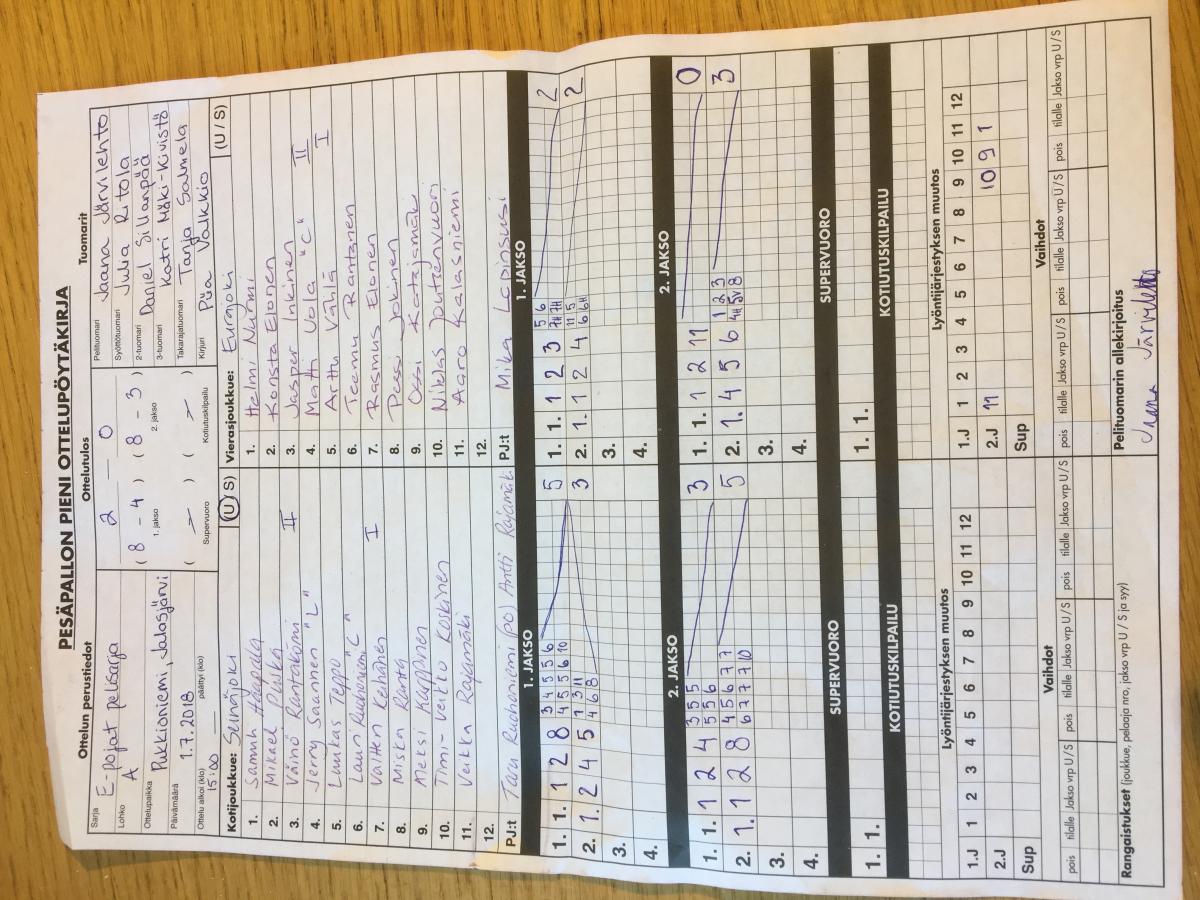 PESÄPALLON PIENI OTTELUPÖYTÄKIRJA
Ottelun perustiedot
Sarja E-pojat pelisarja
Lohko A
Ottelupaikka Pukkioniemi, Jalasjärvi
Päivämäärä 1.7.2018
Ottelu alkoi (klo) 15:00 päättyi (klo)
Ottelutulos
2 - 0
(8 - 4) (8 - 3)
1. jakso 2. jakso
( - ) ( - )
Supervuoro Kotiutuskilpailu
Tuomarit
Pelituomari Jaana Järvilehto
Syöttötuomari Jukka Ritola
2-tuomari Daniel Sillanpää
3-tuomari Katri Mäki-Kivistö
Takarajatuomari Tanja Salmela
Kirjuri Piia Valkkio
Kotijoukkue: Seinäjoki (U/S)
1. Samuli Haapala
2. Mikael Pluska
3. Väinö Rantakömi II
4. Jerry Saarinen "L"
5. Luukas Teppo
6. Lauri Ruohoniemi "C"
7. Valtteri Keihänen I
8. Miska Ranta
9. Aleksi Kuppinen
10. Timi-Veikko Koskinen
11. Veikka Rajamäki
12.
PJ:t Taru Ruohoniemi (po) Antti Rajamäki
Vierasjoukkue: Eurajoki (U / S)
1. Helmi Nurmi
2. Konsta Elonen
3. Jasper Inkinen II
4. Matti Uola "C"
5. Arttu Vählä I
6. Teemu Rantanen
7. Rasmus Elonen
8. Pessi Jokinen
9. Ossi Katajamäk
10. Niklas Joutsenvuori
11. Aaro Kalasniemi
12.
PJ:t Mika Lapinsuusi
1. JAKSO 1. JAKSO
1. 1. 1 2 8 3 4 5 5 6 5
4 5 5 6 10
2. 1. 2 4 5 1 3 11 3
4 6 8
3.
4.
1. 1. 1 2 3 5 6 2
7H 7H
2. 1. 1 2 4 11 5 2
6 6H
3.
4.
2. JAKSO 2. JAKSO
1. 1. 1 2 4 3 5 5 3
5 5 6
2. 1. 1 2 8 4 5 6 7 7 5
6 7 7 7 10
3.
4.
1. 1. 1 2 11 0
2. 1. 4 5 6 1 2 3 3
4H 5V 8
3.
4.
SUPERVUORO SUPERVUORO
1. 1.
1. 1.
KOTIUTUSKILPAILU KOTIUTUSKILPAILU
Lyöntijärjestyksen muutos
1.J 1 2 3 4 5 6 7 8 9 10 11 12
2.J
Sup
Lyöntijärjestyksen muutos
1.J 1 2 3 4 5 6 7 8 9 10 11 12
2.J 11 10 9 1
Sup
Vaihdot
pois tilalle Jakso vrp U/S pois tilalle Jakso vrp U/S pois tilalle Jakso vrp U/S
Vaihdot
pois tilalle Jakso vrp U/S pois tilalle Jakso vrp U/S pois tilalle Jakso vrp U/S
Rangaistukset (joukkue, pelaaja nro, jakso vrp U / S ja syy)
Pelituomarin allekirjoitus
Jaana Järvilehto